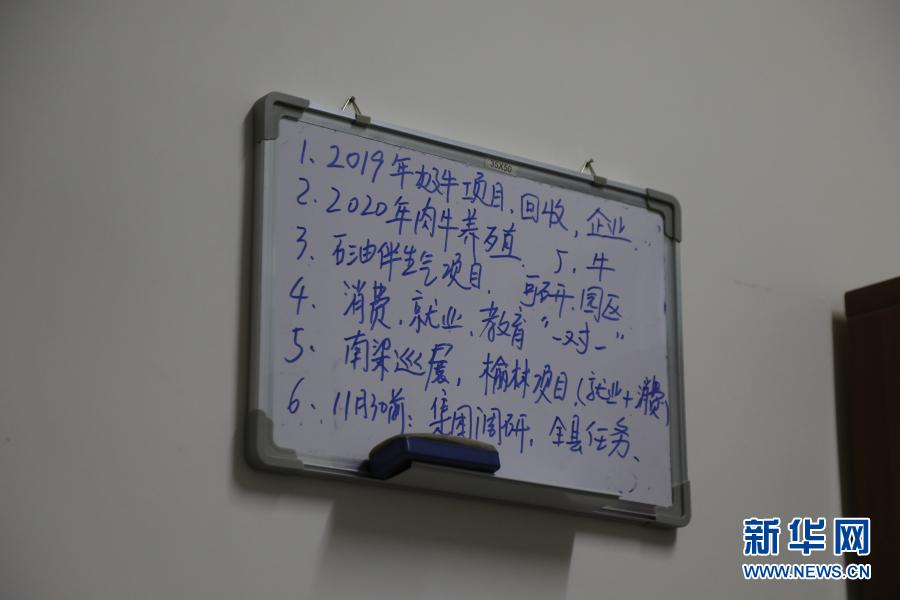 35X50
1、2019年极牛项目、回收，企业
2、2020年肉牛养殖、厂、牛
3、石油伴生气项目、可研、园区
4、消费、就业、教育“一对一”
5、南梁巡展，榆林项目（就业+消费）
6、11月30前：集团调研，全县任务、
新华网
WWW.NEWS.CN